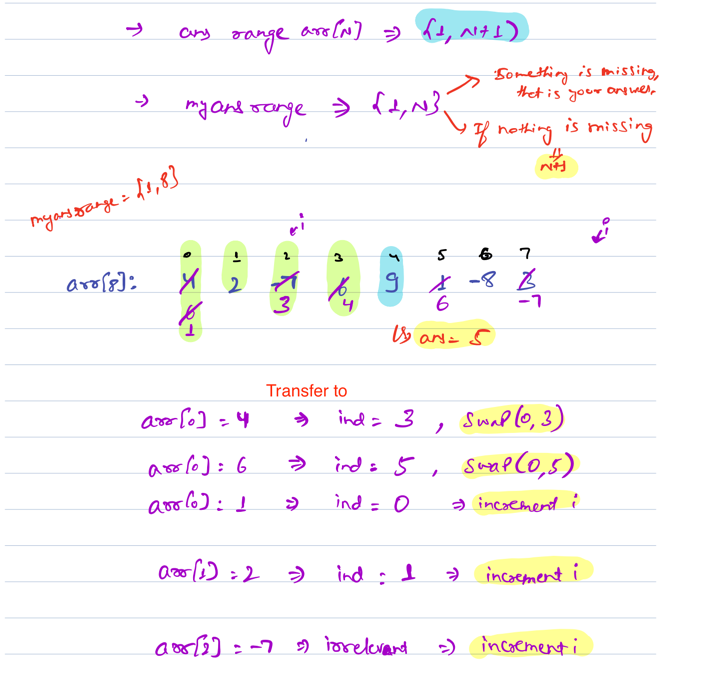 → ans range arr[N] ⇒ {1, N+1}
→ my ans range ⇒ {1, N}
Something is missing, that is your answer.
If nothing is missing
⇓
N+1
my ans range = {1, 8}
i
i
0 1 2 3 4 5 6 7
arr[8]: 4 2 -7 6 9 1 -8 3
6 3 4 6 -7
1
↳ ans = 5
Transfer to
arr[0] = 4 ⇒ ind = 3 , swap(0,3)
arr[0] : 6 ⇒ ind = 5 , swap(0,5)
arr[0] : 1 ⇒ ind = 0 ⇒ increment i
arr[1] = 2 ⇒ ind : 1 ⇒ increment i
arr[2] = -7 ⇒ irrelevant ⇒ increment i